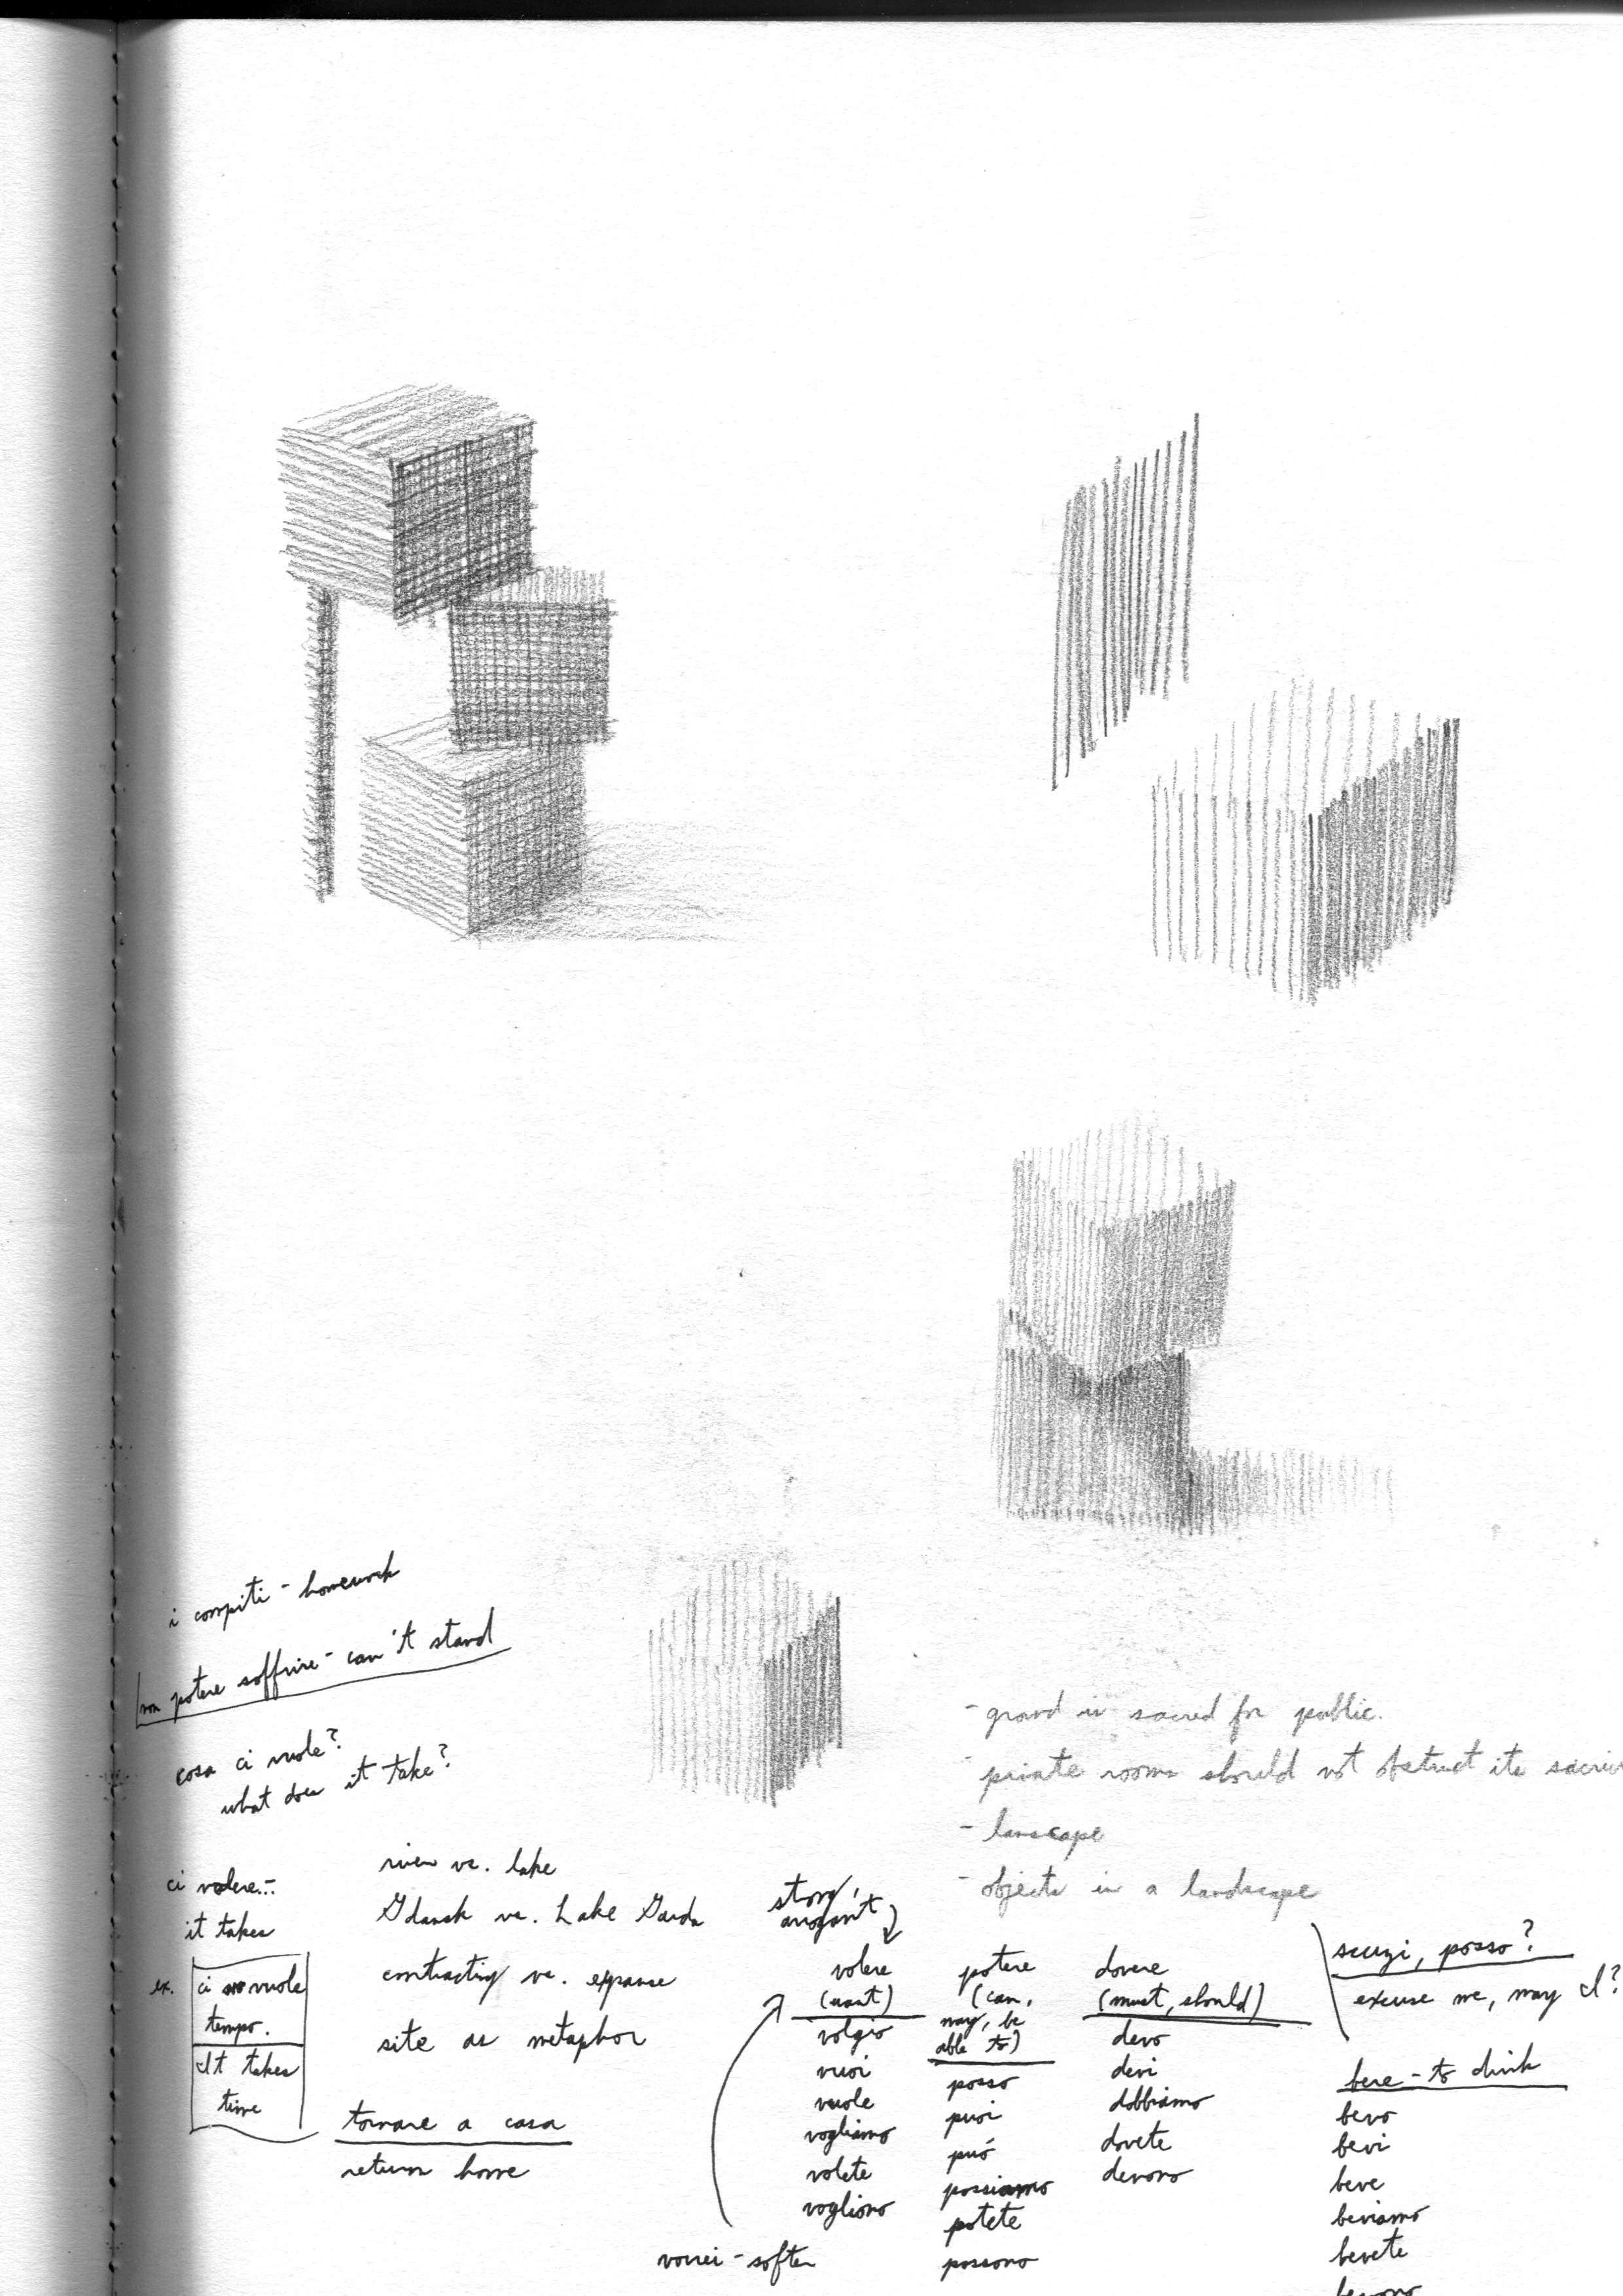 i compiti - homework
non potere soffrire - can't stand
cosa ci vuole?
what does it take?
ci volere...
it takes
ex.
ci vuole
tempo.
It takes
time
river vs. lake
Gdansk vs. Lake Garda
contracting vs. expanse
site as metaphor
tornare a casa
return home
- ground is sacred for public.
- private rooms should not obstruct its
- lanscape
- objects in a landscape
strong,
arrogant
volere
(want)
volgio
vuoi
vuole
vogliamo
volete
vogliono
vorrei - softer
potere
(can,
may, be
able to)
posso
puoi
può
possiamo
potete
possono
dovere
(must, should)
devo
devi
dobbiamo
dovete
devono
scuzi, posso?
excuse me, may I?
bere - to drink
bevo
bevi
beve
beviamo
bevete
bevono